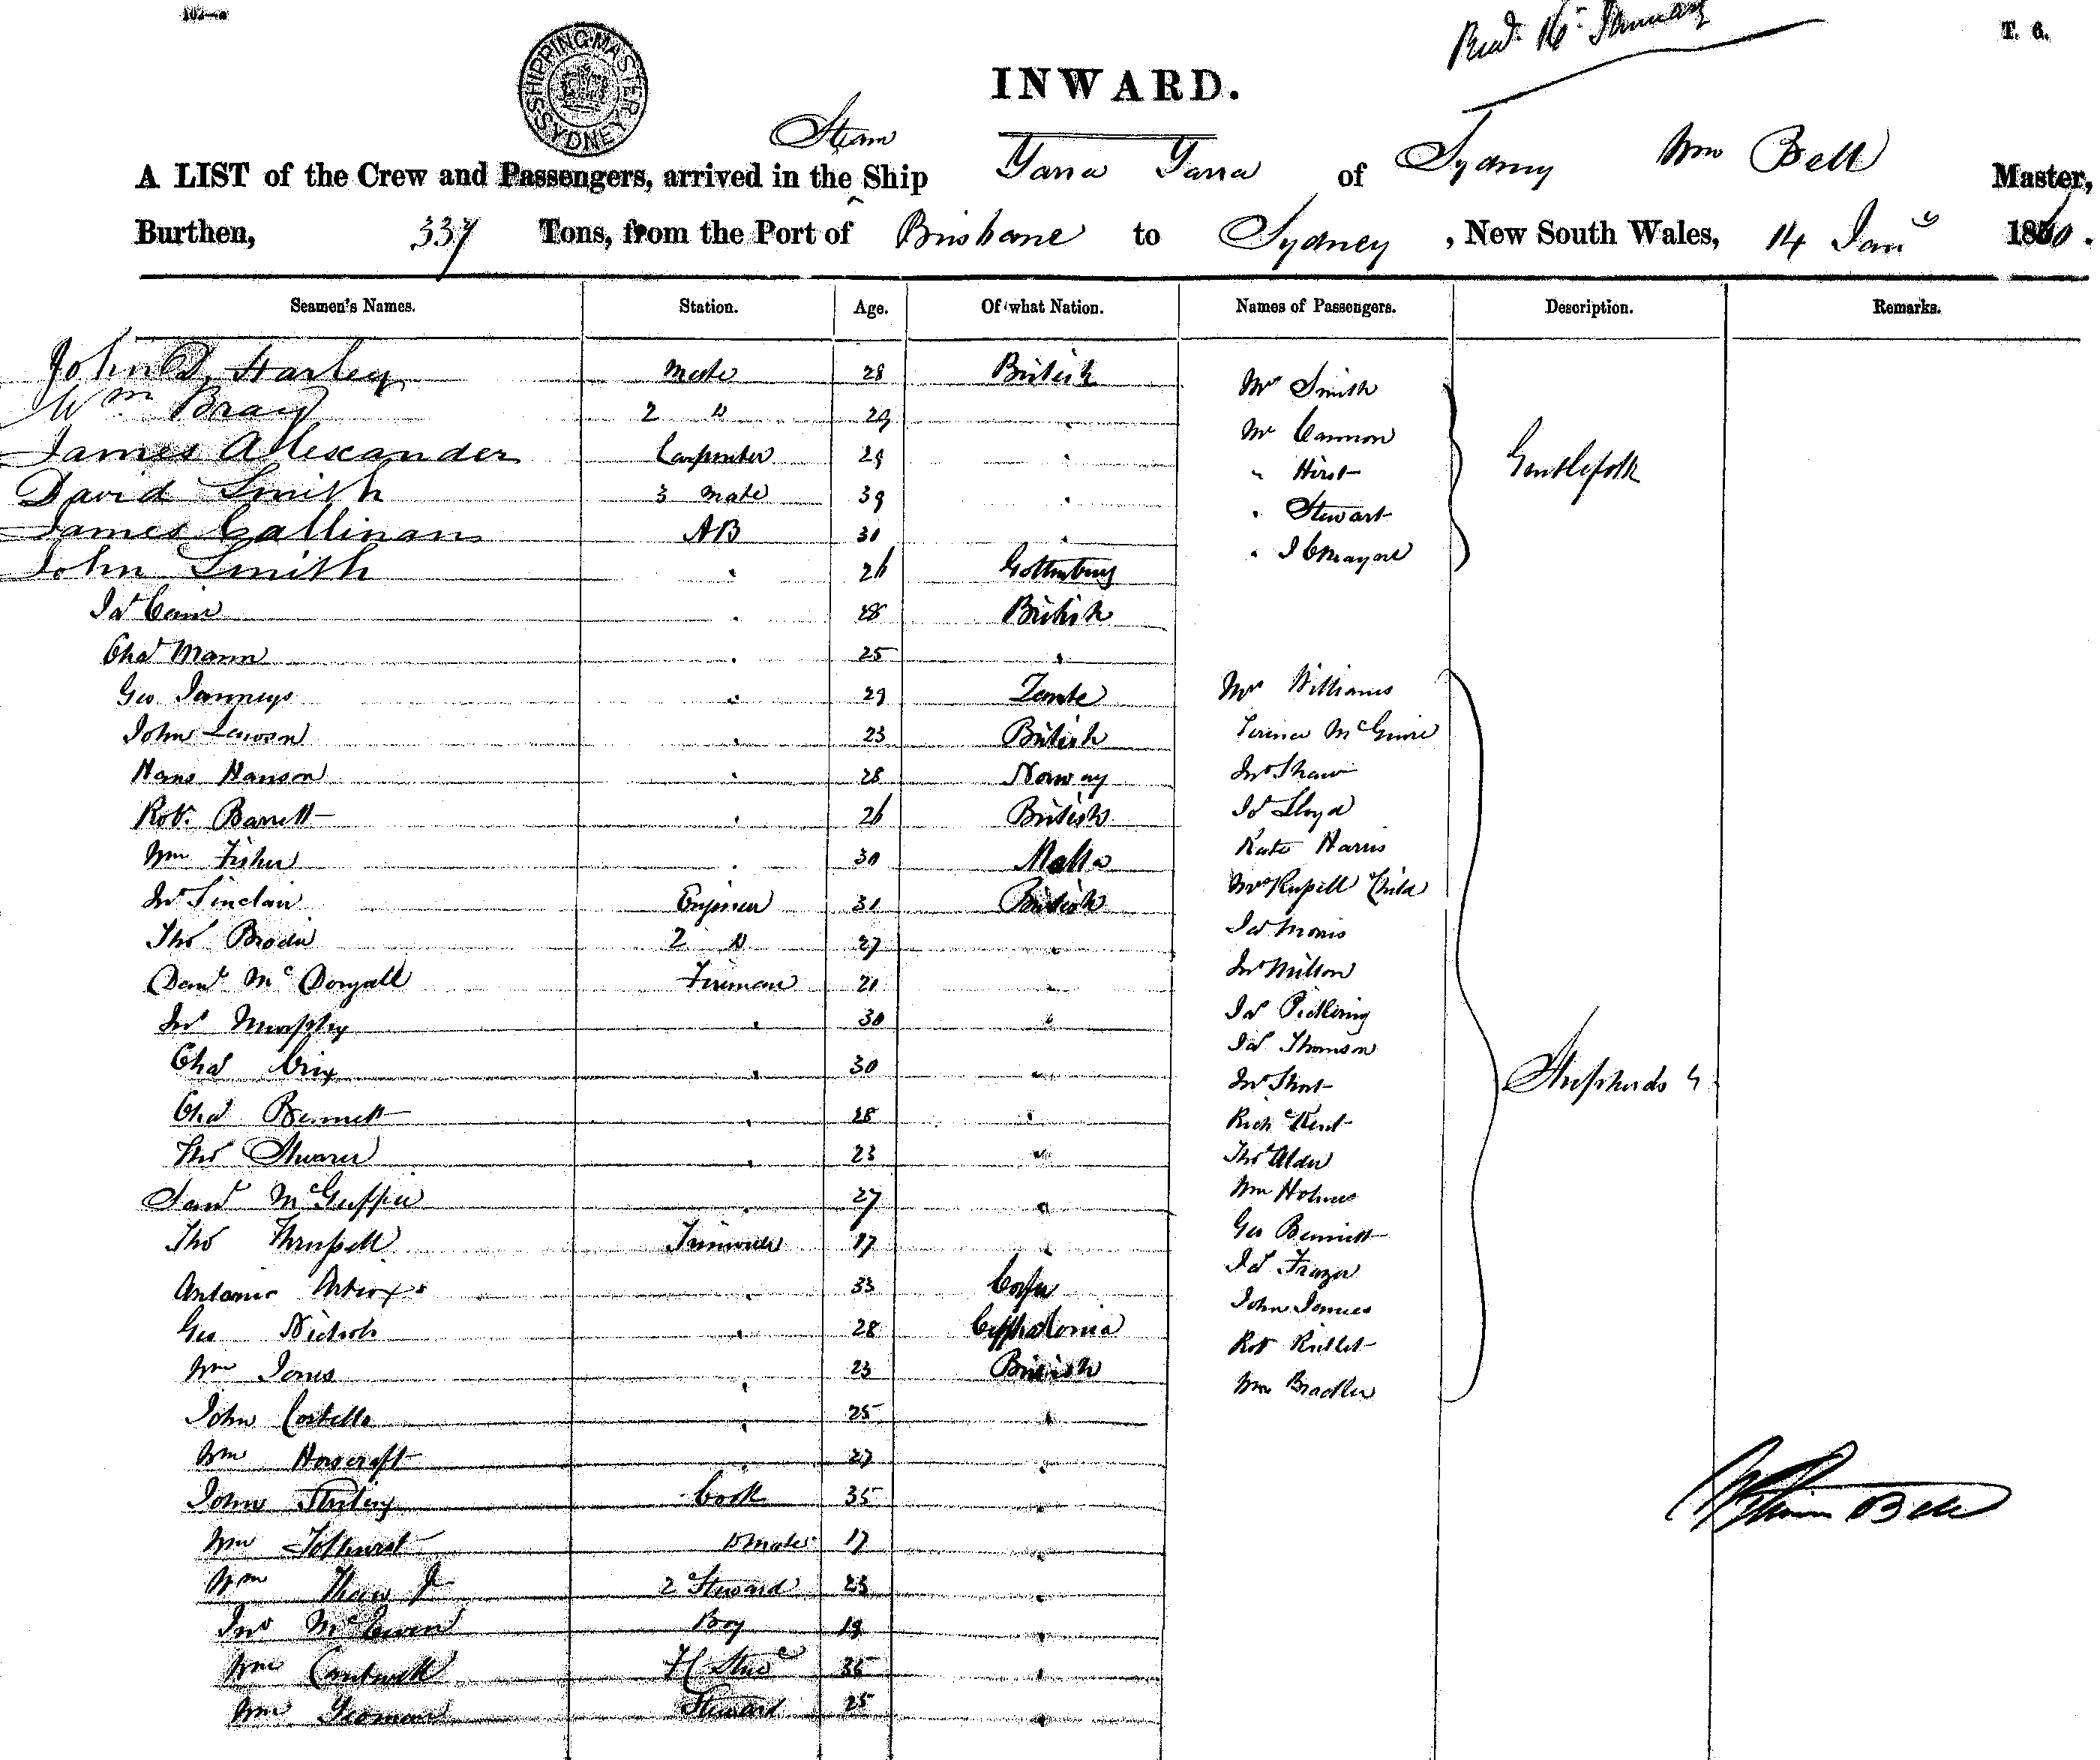 102—a
T. 6.
16 January
SHIPPING MASTER SYDNEY
INWARD.
Steam
A LIST of the Crew and Passengers, arrived in the Ship Yarra Yarra of Sydney Wm Bell Master,
Burthen, 337 Tons, from the Port of Brisbane to Sydney, New South Wales, 14 Jany 1860.
Seamen's Names. Station. Age. Of what Nation. Names of Passengers. Description. Remarks.
John D. Harley Mate 28 British Mr Smith
Wm Bray 2 D 29 " Mr Cannon
James Allexander Carpenter 29 " " Hirst Gentlefolk
David Smith 3 Mate 39 " " Stewart
James Callinan AB 30 " "
John Smith " 26 Gottenburg
Jas Cain " 28 British
Chas Mann " 25 "
Geo " 29 Zante Mrs Williams
John Lawson " 23 British Terence McGuire
Hans Hanson " 28 Norway Jno Shaw
Robt. Barrett " 26 British Jas Lloyd
Wm Fisher " 30 Malta Kate Harris
Jno Sinclair Engineer 31 British Mrs Russell Child
Thos Brodie 2 D 27 " Jas Morris
Danl McDougall Fireman 21 " Jno Milson
Jno Murphy " 30 " Jas Pickering
Chas Crix " 30 " Jas Thomson
Chas Bennett " 28 " Jno Short Shepherds &
Thos Shearer " 23 " Richd Kent
Saml McGuffie " 27 " Thos Alder
Thos Thrussell Trimmer 17 " Wm Holmes
Antonio " 33 Corfu Geo Bennett
Geo Nichols " 28 Cephalonia Jas Frazer
Wm Jones " 23 British John James
John Costello " 25 " Robt
Wm Howcroft " 27 " Wm Bradley
John Stirling Cook 35 "
Wm Tolhurst D mate 17 "
Wm 2 Steward 23 "
Jno McEwen Boy 19 "
Wm Cantwell 36 "
Wm Yeoman Steward 25 "
William Bell